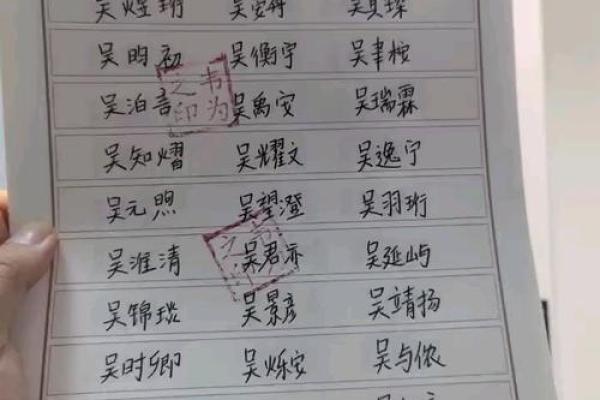 吴煜珊 吴安得 吴贝琛
吴昀初 吴衡宇 吴聿桉
吴泊言 吴禹安 吴瑞霖
吴知熠 吴耀文 吴逸宁
吴元煦 吴望澄 吴羽珩
吴淮清 吴君亦 吴延屿
吴锦琰 吴景彦 吴靖扬
吴时卿 吴烁安 吴与侬
韦为之印